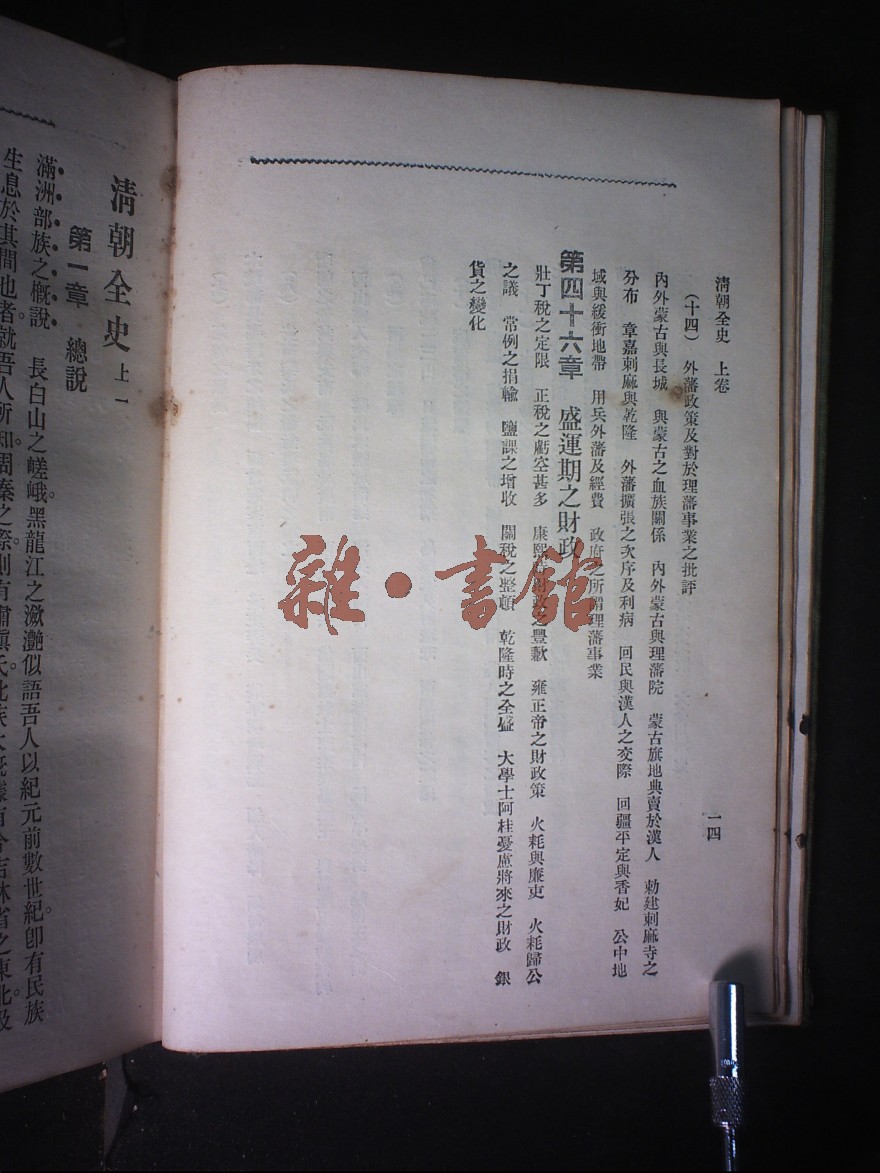 清朝全史　上卷　一四
（十四）　外藩政策及對於理藩事業之批評
內外蒙古與長城　與蒙古之血族關係　內外蒙古與理藩院　蒙古旗地典賣於漢人　勅建剌麻寺之
分布　章嘉剌麻與乾隆　外藩擴張之次序及利病　回民與漢人之交際　回疆平定與香妃　公中地
域與緩衝地帶　用兵外藩及經費　政府之所謂理藩事業
第四十六章　盛運期之財政
壯丁稅之定限　正稅之虧空甚多　康熙時財政之豐歉　雍正帝之財政策　火耗與廉吏　火耗歸公
之議　常例之捐輸　鹽課之增收　關稅之整頓　乾隆時之全盛　大學士阿桂憂慮將來之財政　銀
貨之變化
清朝全史　上一
第一章　總說
滿洲部族之概說　長白山之嵯峨。黑龍江之瀲灧似語吾人以紀元前數世紀。卽有民族
生息於其間也。者就吾人所知。周秦之際。則有肅愼氏。此族大概據有今吉林省之東北。及
雜·書館